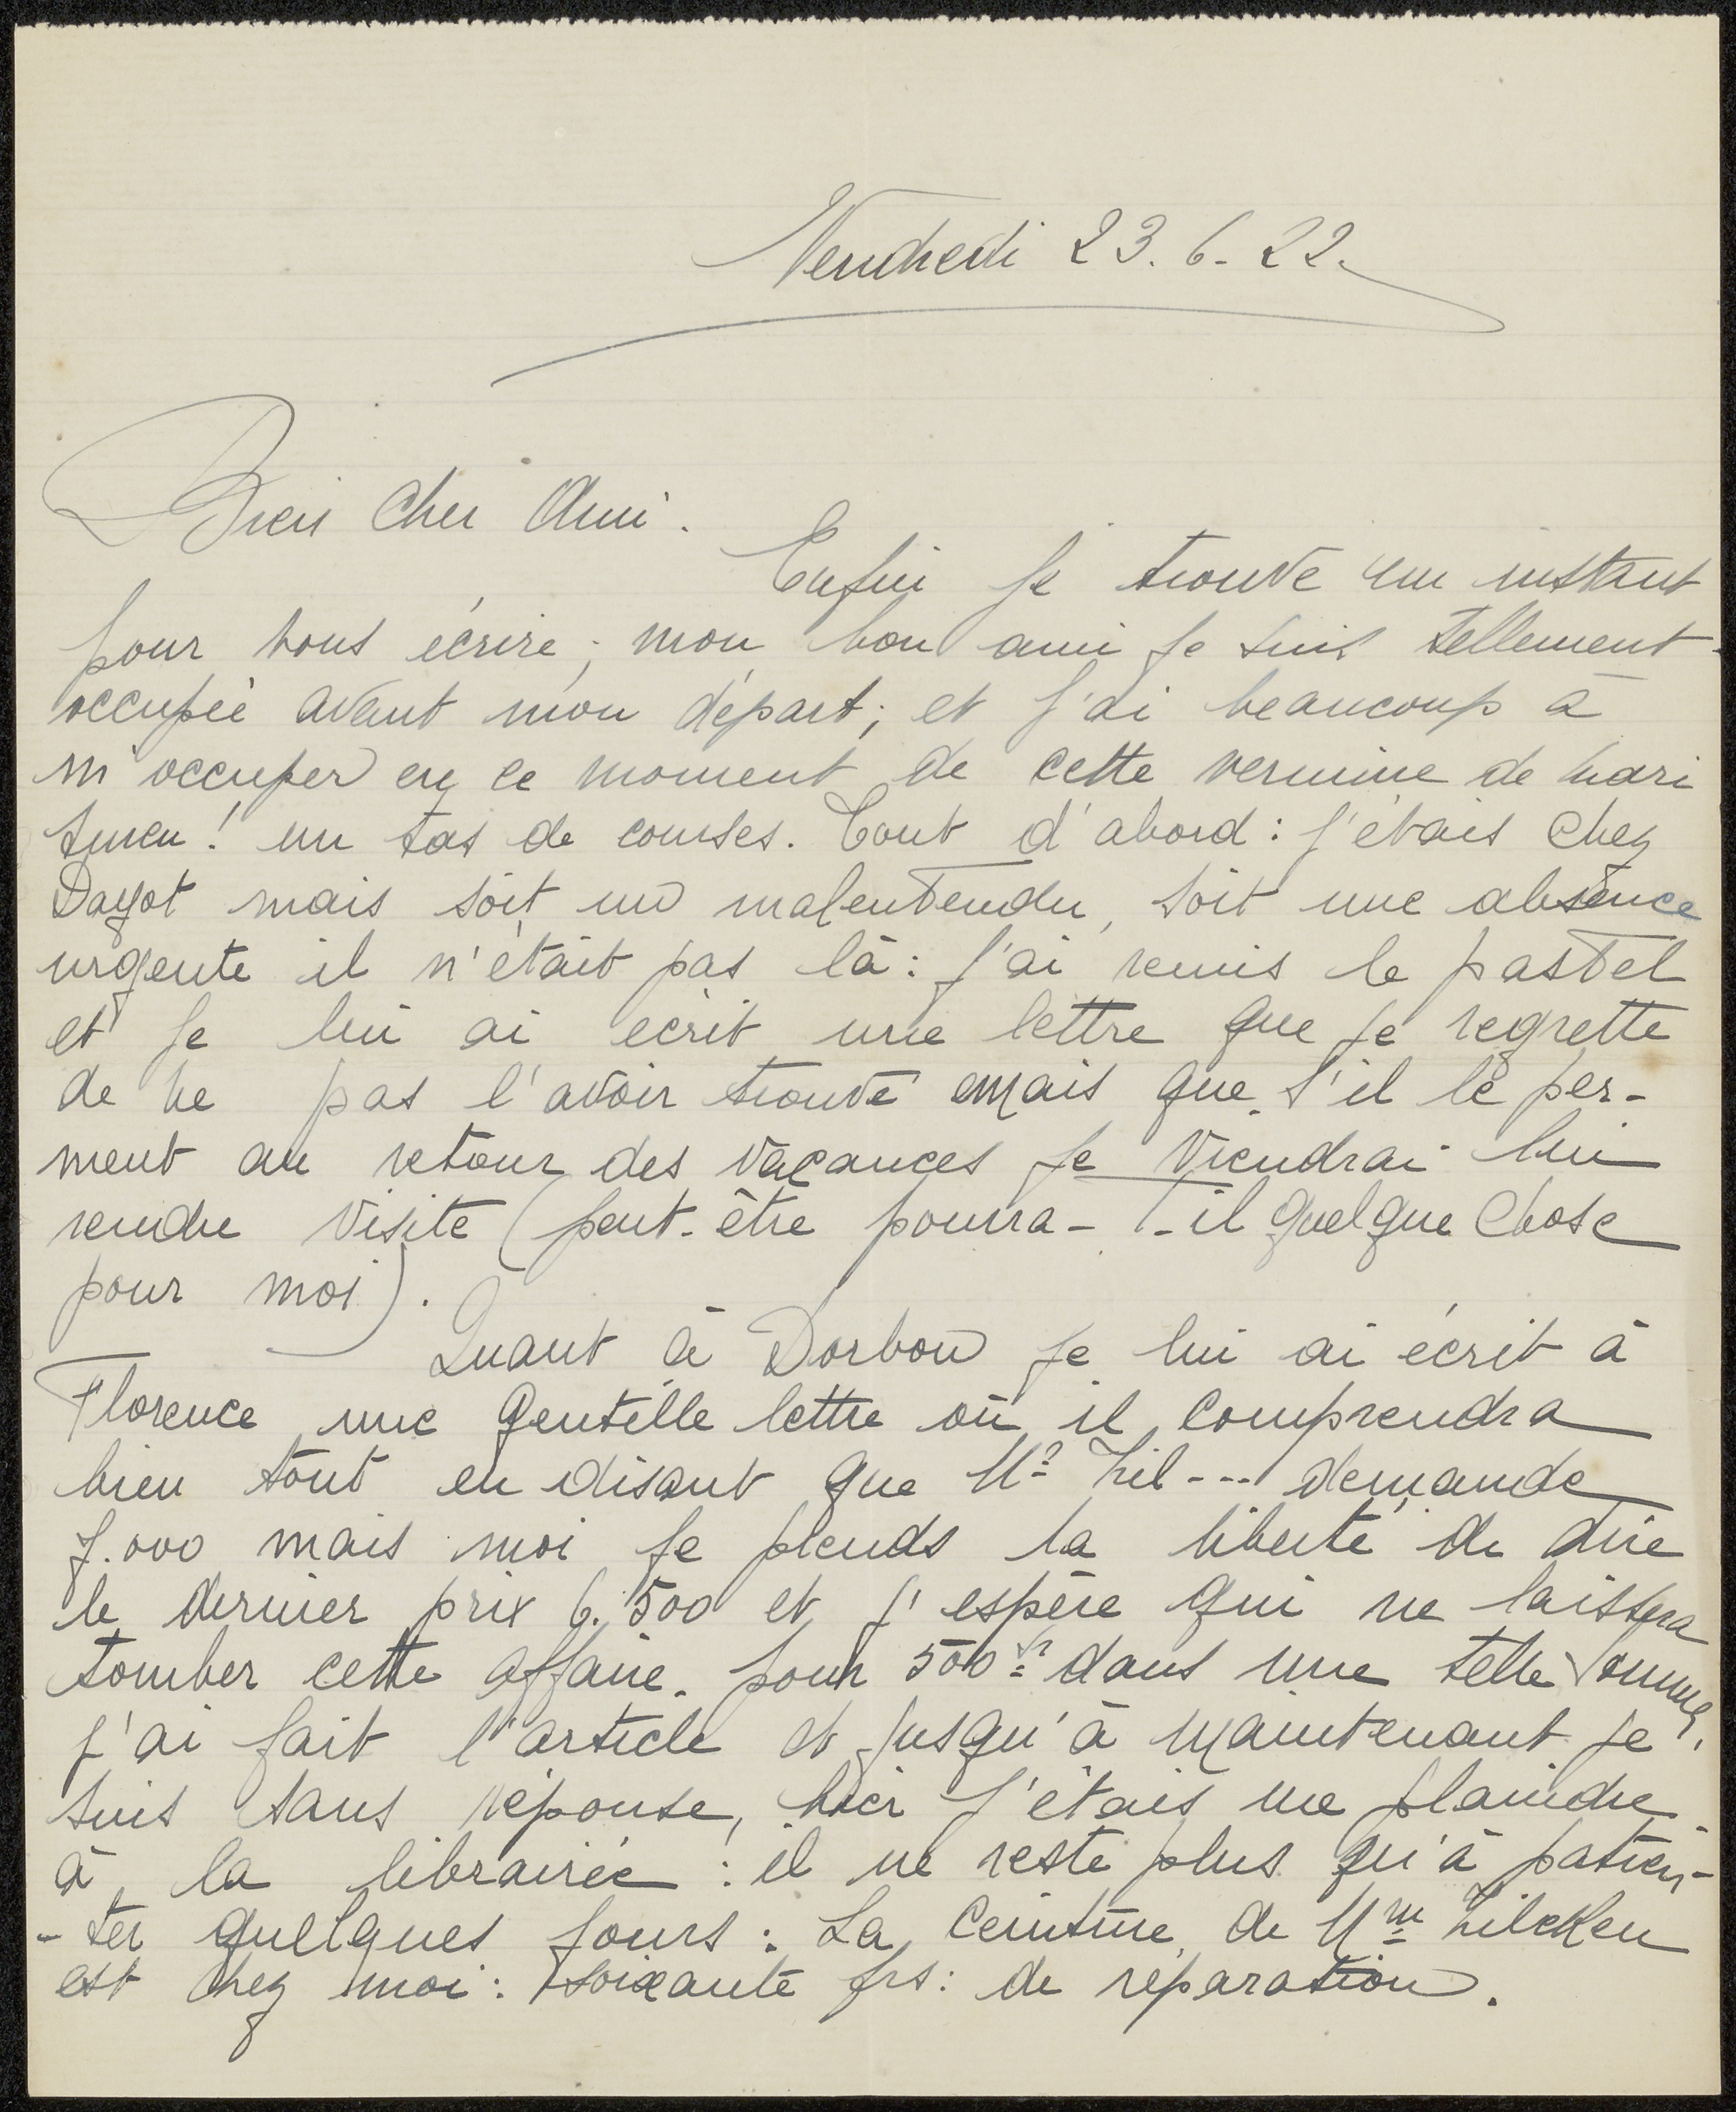 Vendredi 23.6-22.
Bien Cher Ami.
Enfin je trouve un instant
pour vous écrire; mon bon ami je suis tellement
occupée avant mon départ; et j'ai beaucoup à
m'occuper en ce moment de cette vermine de
un tas de courses. Tout d'abord: j'étais chez
Dayot mais soit un malentendu, soit une absence
urgente il n'était pas là: j'ai remis le pastel
et je lui ai écrit une lettre que je regrette
de ne pas l'avoir trouvé mais que s'il le per-
ment au retour des vacances je viendrai lui
rendre visite (peut-être pourra-t-il quelque chose
pour moi).
Quant à Dorbon je lui ai écrit à
Florence une gentille lettre où il comprendra
bien tout en disant que Mr Zil--- demande
7.000 mais moi je prends la liberté de dire
le dernier prix 6.500 et j'espère qui ne laissera
tomber cette affaire. pour 500 frs dans une telle somme,
j'ai fait l'article et jusqu'à maintenant je
suis sans réponse, hier j'étais me plaindre
à la librairie: il ne reste plus qu'à patien-
-ter quelques jours: La ceinture de Mme Zilcken
est chez moi: soixante frs: de réparation.